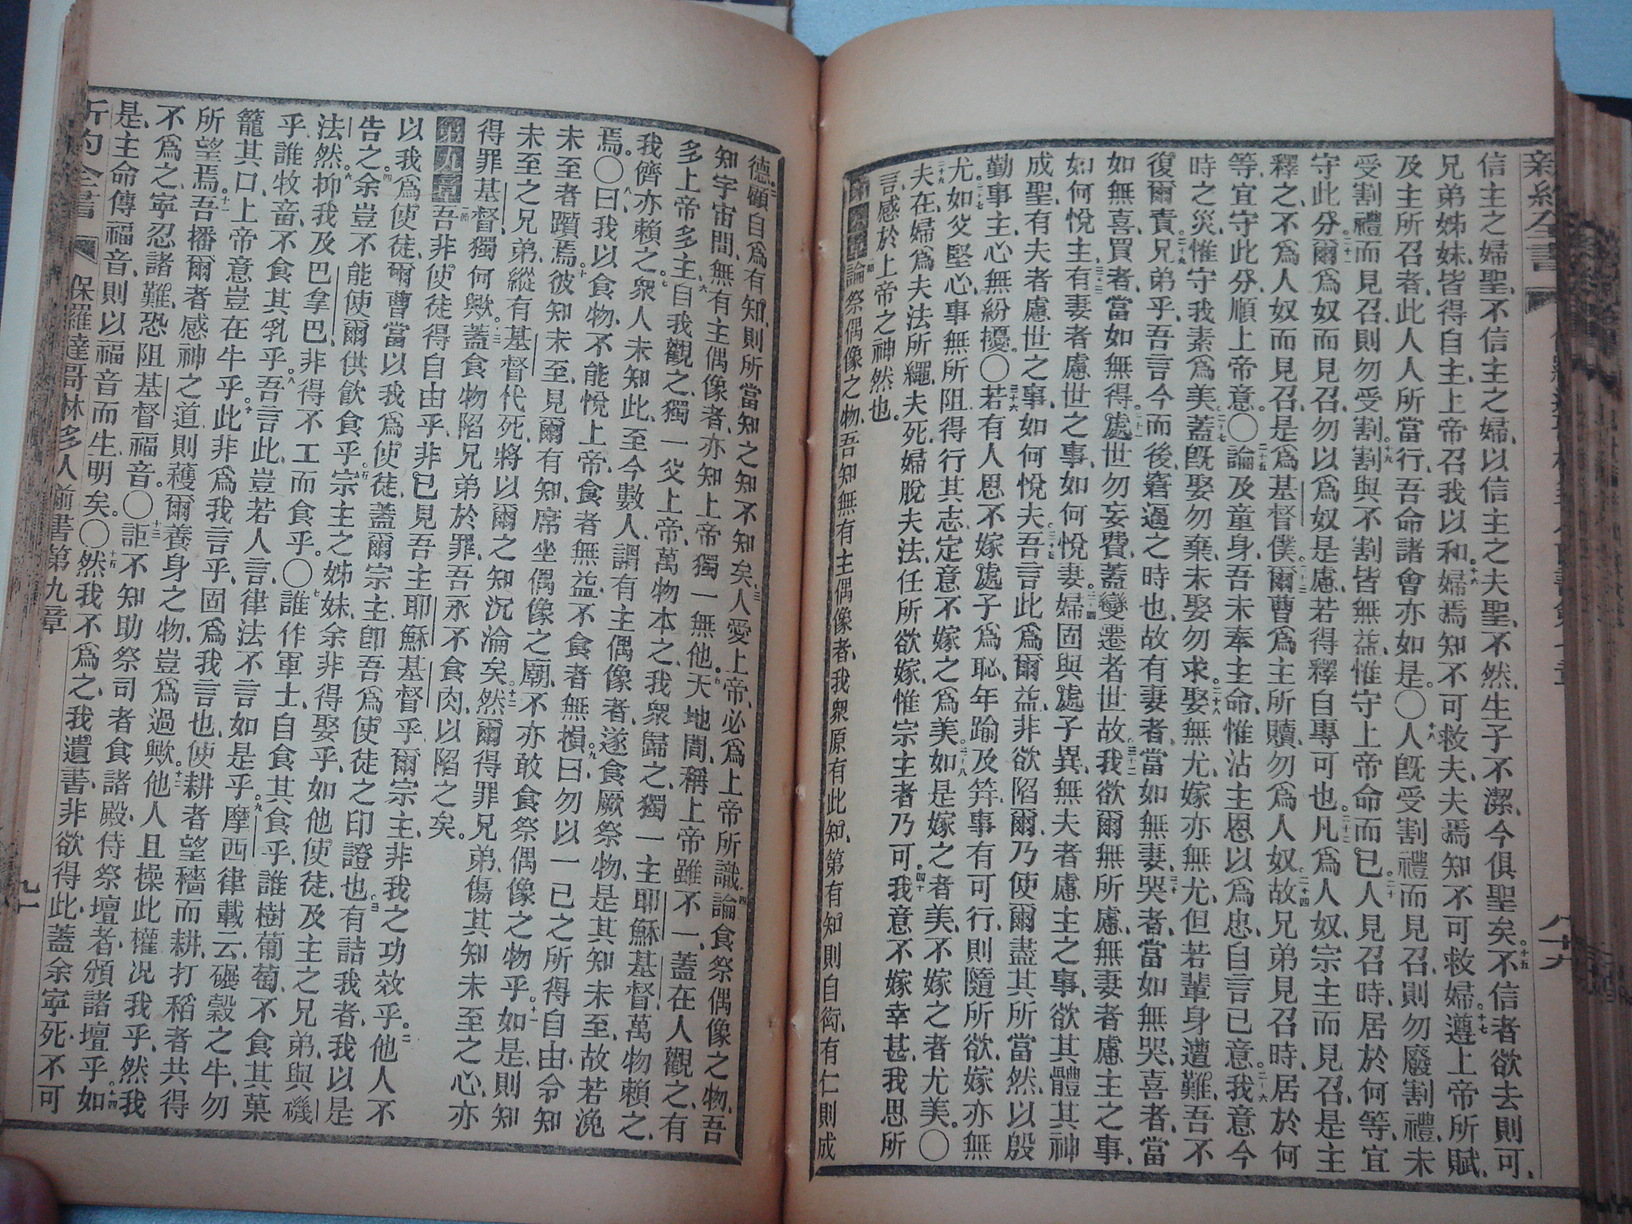 新約全書
信主之婦聖、不信主之婦、以信主之夫聖、不然、生子不潔、今俱聖矣、十五不信者欲去則可、
兄弟姊妹、皆得自主、上帝召我以和、十六婦焉知不可救夫、夫焉知不可救婦、十七遵上帝所賦、
及主所召者、此人人所當行、吾命諸會亦如是。〇十八人旣受割禮而見召、則勿廢割禮、未
受割禮而見召、則勿受割、十九割與不割、皆無益、惟守上帝命而已、二十人見召時、居於何等、宜
守此分、二十一爾爲奴而見召、勿以爲奴是慮、若得釋自專可也、二十二凡爲人奴、宗主而見召、是主
釋之、不爲人奴而見召、是爲基督僕、二十三爾曹爲主所贖、勿爲人奴、二十四故兄弟見召時、居於何
等、宜守此分、順上帝意。〇二十五論及童身、吾未奉主命、惟沾主恩以爲忠、自言已意、二十六我意今
時之災、惟守我素爲美、二十七蓋旣娶勿棄、未娶勿求娶、二十八娶無尤、嫁亦無尤、但若輩身遭難、吾不
復爾責、二十九兄弟乎、吾言今而後、窘過之時也、故有妻者、當如無妻、三十哭者、當如無哭、喜者、當
如無喜、買者、當如無得、三十一處世勿妄費、蓋變遷者世故、三十二我欲爾無所慮、無妻者慮主之事、
如何悅主、三十三有妻者慮世之事、如何悅妻、三十四婦固與處子異、無夫者慮主之事、欲其體其神
成聖、有夫者慮世之事、如何悅夫、三十五吾言此爲爾益、非欲陷爾、乃使爾盡其所當然、以殷
勤事主、心無紛擾。〇三十六若有人思不嫁處子爲恥、年踰及笄、事有可行、則隨所欲、嫁亦無
尤、三十七如父堅心、事無所阻、得行其志、定意不嫁之爲美、三十八如是嫁之者美、不嫁之者尤美。〇
三十九夫在、婦爲夫法所繩、夫死、婦脫夫法、任所欲嫁、惟宗主者乃可、四十我意不嫁幸甚、我思所
言、感於上帝之神然也。
第八章一節論祭偶像之物、吾知無有主偶像者、我衆原有此知、第有知則自衒、有仁則成
德、二顧自爲有知、則所當知之知、不知矣、三人愛上帝、必爲上帝所識、四論食祭偶像之物、吾
知宇宙間、無有主偶像者、亦知上帝獨一無他、五天地間、稱上帝雖不一、蓋在人觀之、有
多上帝多主、六自我觀之、獨一父上帝、萬物本之、我衆歸之、獨一主耶穌基督、萬物賴之、
我儕亦賴之、七衆人未知此、至今數人、謂有主偶像者、遂食厥祭物、是其知未至、故若浼
焉。〇八曰我以食物、不能悅上帝、食者無益、不食者無損、九曰勿以一已之所得自由、令知
未至者躓焉、十彼知未至、見爾有知、席坐偶像之廟、不亦敢食祭偶像之物乎、十一如是、則知
未至之兄弟、縱有基督代死、將以爾之知沉淪矣、十二然爾得罪兄弟、傷其知未至之心、亦
得罪基督、獨何歟、十三蓋食物陷兄弟於罪、吾永不食肉、以陷之矣。
第九章一節吾非使徒得自由乎、非已見吾主耶穌基督乎、爾宗主、非我之功效乎、二他人不
以我爲使徒、爾曹當以我爲使徒、蓋爾宗主、卽吾爲使徒之印證也、三有詰我者、我以是
告之、四余豈不能使爾供飲食乎、五宗主之姊妹、余非得娶乎、如他使徒、及主之兄弟、與磯
法然、六抑我及巴拿巴、非得不工而食乎。〇七誰作軍士、自食其食乎、誰樹葡萄、不食其菓
乎、誰牧畜、不食其乳乎、八吾言此、豈若人言、律法不言如是乎、九摩西律載云、碾穀之牛、勿
籠其口、上帝意豈在牛乎、十此非爲我言乎、固爲我言也、使耕者望穡而耕、打稻者共得
所望焉、十一吾播爾者感神之道、則穫爾養身之物、豈爲過歟、十二他人且操此權、況我乎、然我
不爲之、寧忍諸難、恐阻基督福音。〇十三詎不知助祭司者、食諸殿、侍祭壇者、頒諸壇乎、十四如
是、主命傳福音、則以福音而生、明矣。〇十五然我不爲之、我遺書、非欲得此、蓋余寧死、不可
新約全書 保羅達哥林多人前書第九章 九一